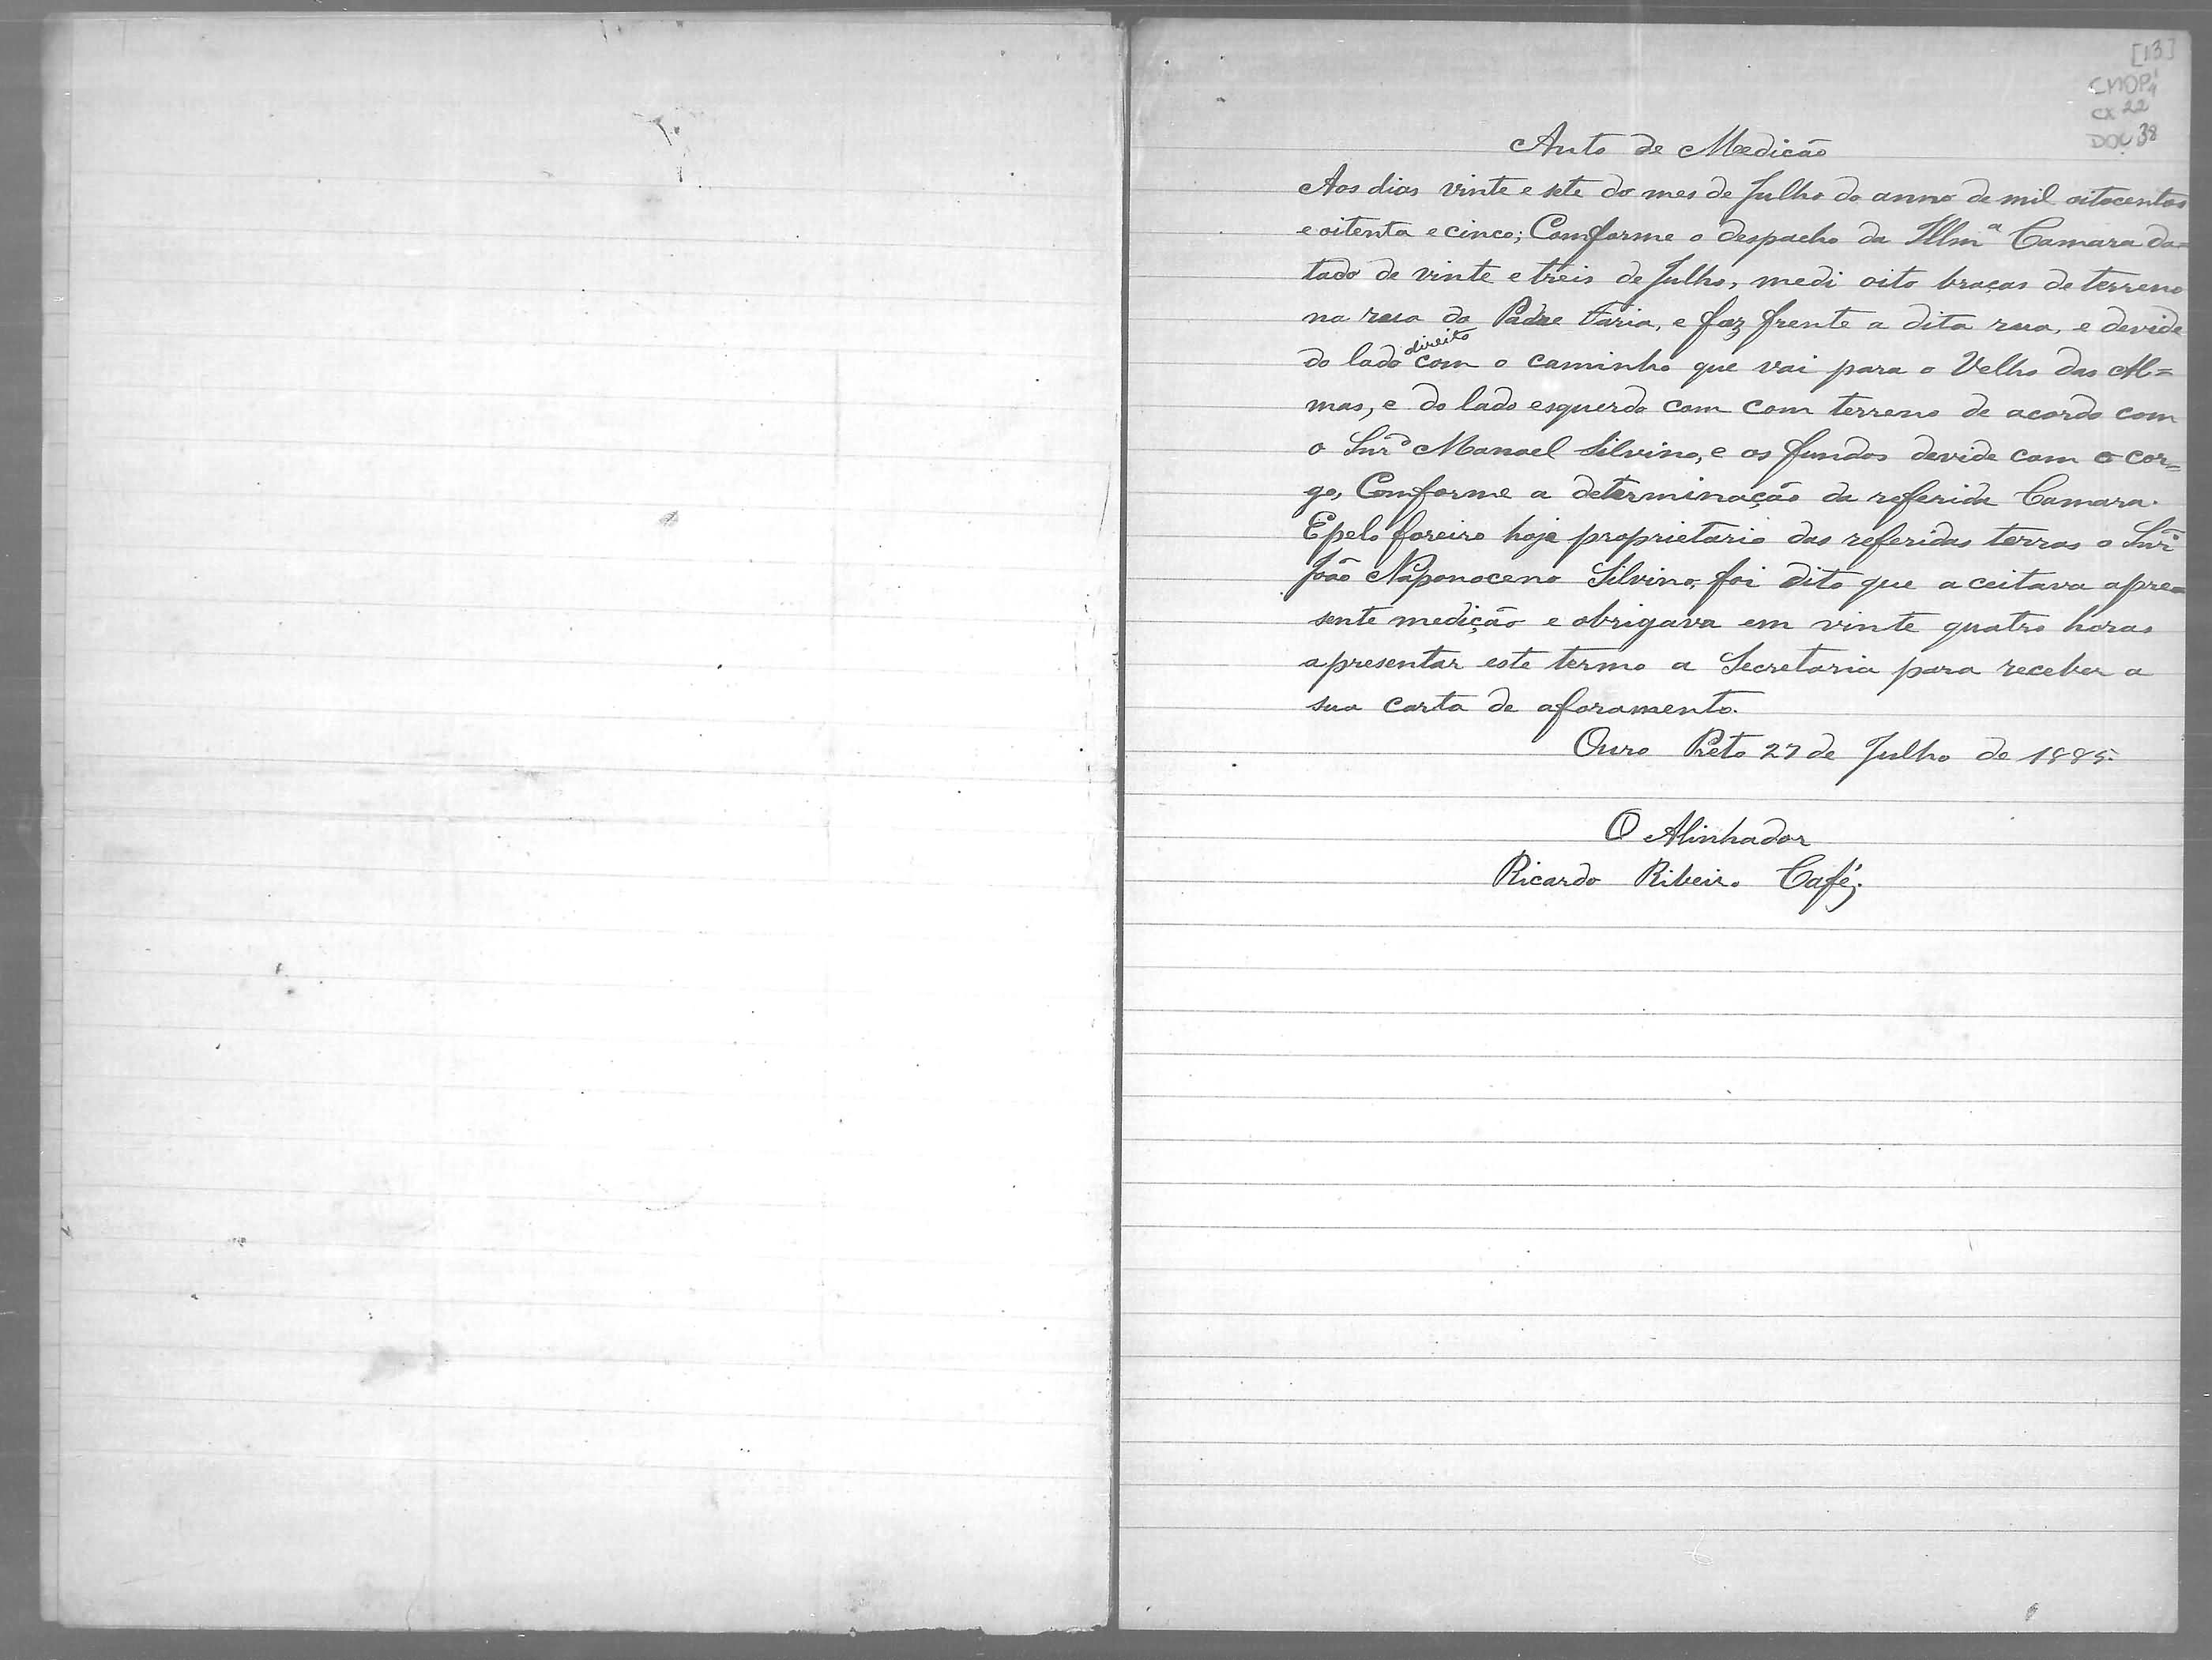 [13]
CMOP
CX 22
DOC 38
Auto de Medicão
Aos dias vinte e sete do mes de Julho do anno de mil oitocentos
e oitenta e cinco; Comforme o despacho da Illmª Camara da=
tado de vinte e treis de Julho, medi oito braças de terreno
na rua do Padre Faria, e faz frente a dita rua, e devide
do lado direito com o caminho que vai para o Velho das Al=
mas, e do lado esquerdo com com terreno de acordo com
o Snr Manoel Silvino, e os fundos devide com o cor=
go, Comforme a determinação da referida Camara.
E pelo foreiro hoje proprietario das referidas terras o Snr
João Naponoceno Silvino, foi dito que aceitava apre=
sente medição e obrigava em vinte quatro horas
apresentar este termo a Secretaria para receber a
sua carta de aforamento.
Ouro Preto 27 de Julho de 1885.
O Alinhador
Ricardo Ribeiro Café.